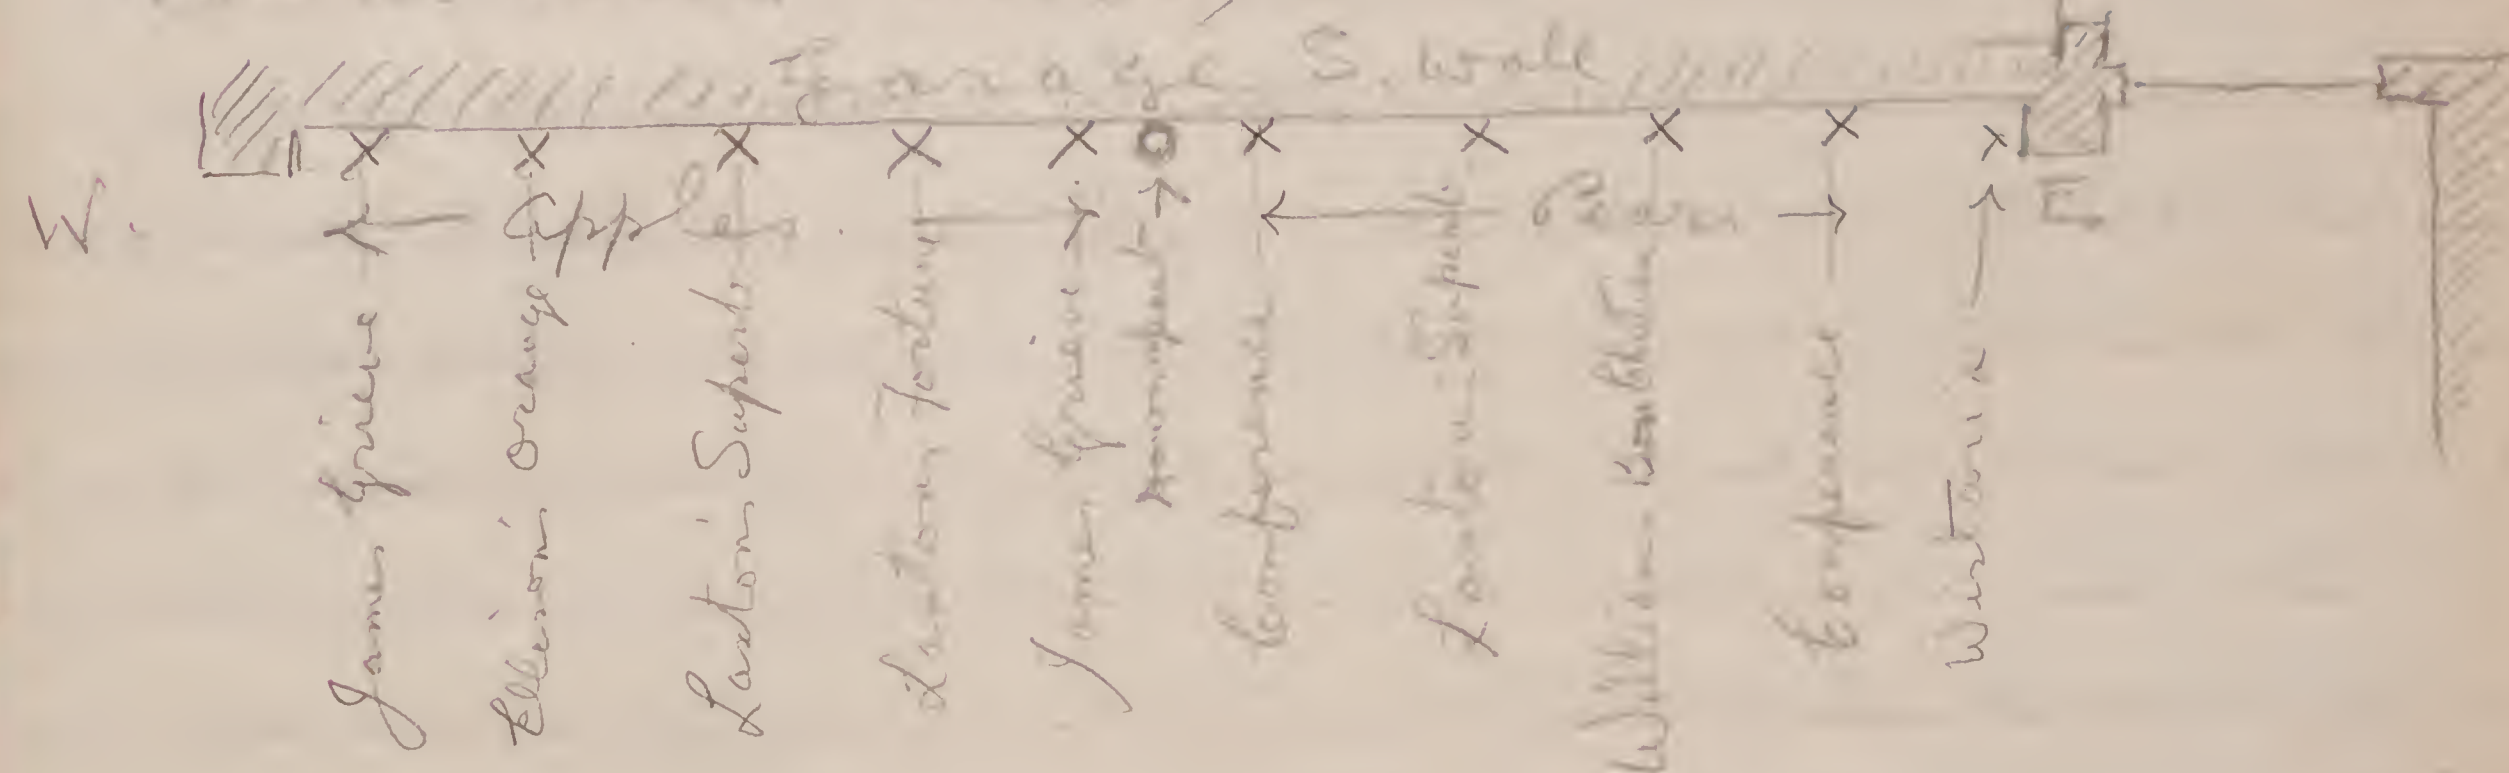 Garage S. Wall
W.
← Apples →
← Pears →
E
James Grieve
Ellison's Orange
Laxton's Superb
Laxton's Fortune
James Grieve
Downpipe
Conference
Laxton's Superb
William Bon Chrétien
Conference
Wistaria